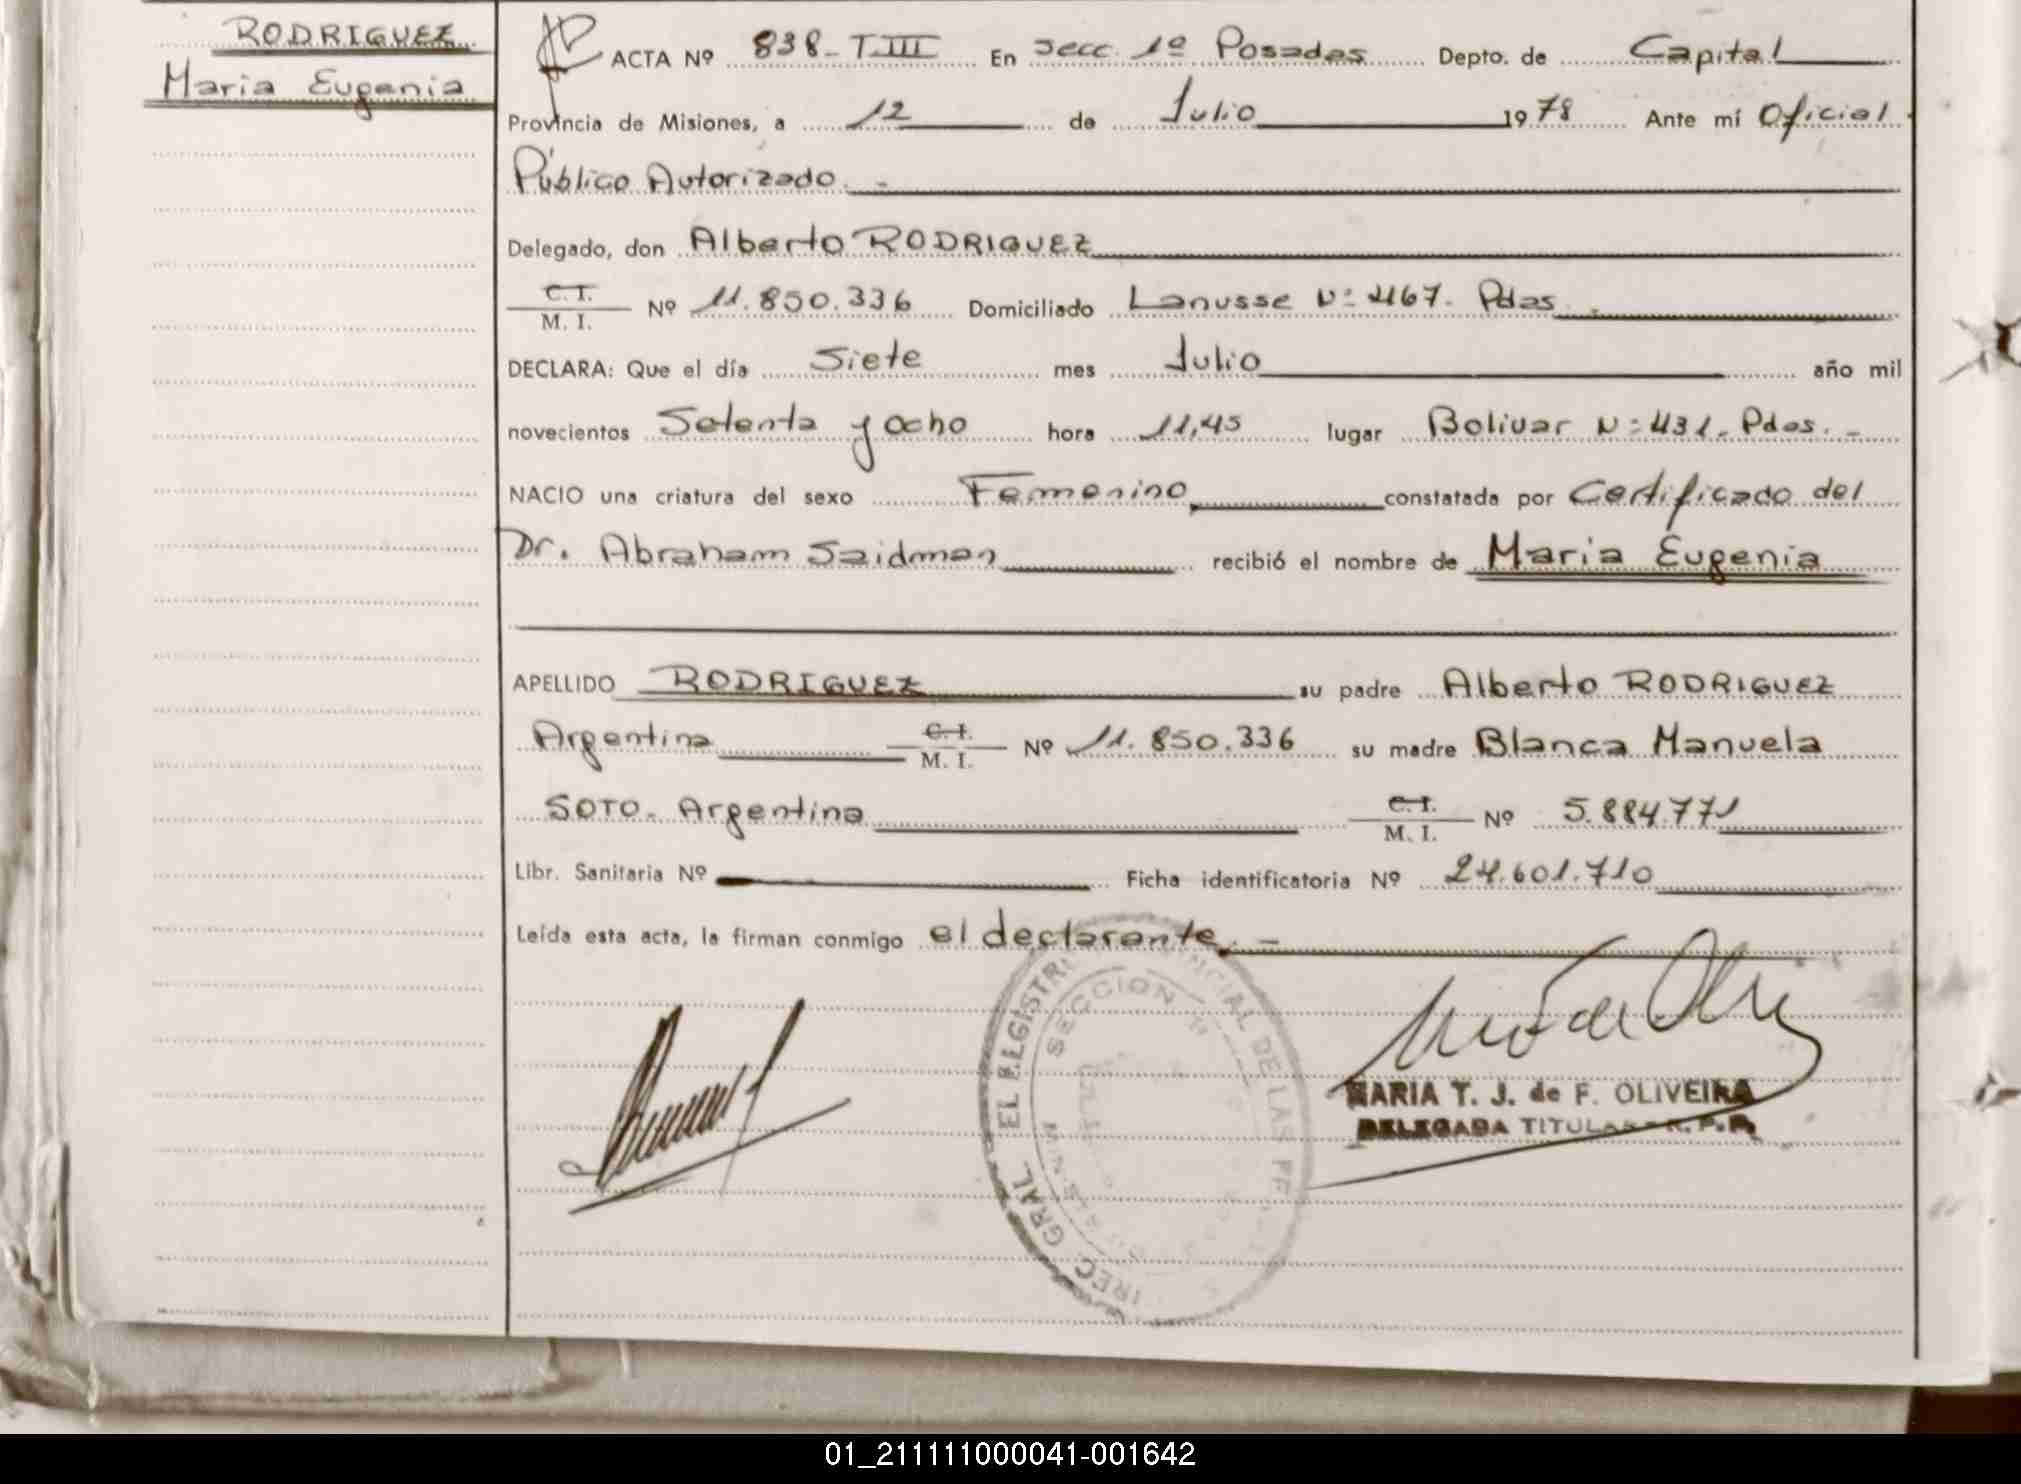 RODRIGUEZ
Maria Eugenia
ACTA Nº 838-T.III En secc. 1º Posadas Depto. de Capital
Provincia de Misiones, a 12 de Julio 1978 Ante mí Oficial
Público Autorizado. -
Delegado, don Alberto RODRIGUEZ
C. I.
M. I. Nº 11.850.336 Domiciliado Lanusse Nº 467. Pdas.
DECLARA: Que el día Siete mes Julio año mil
novecientos Setenta y ocho hora 11,45 lugar Bolivar Nº 431. Pdas. -
NACIO una criatura del sexo Femenino constatada por Certificado del
Dr. Abraham Saidman recibió el nombre de Maria Eugenia
APELLIDO RODRIGUEZ su padre Alberto RODRIGUEZ
Argentina C. I.
M. I. Nº 11.850.336 su madre Blanca Manuela
SOTO. Argentina C. I.
M. I. Nº 5.884.771
Libr. Sanitaria Nº Ficha identificatoria Nº 24.601.710
Leída esta acta, la firman conmigo el declarante. -
SECCION
GRAL EL DE LAS
MARIA T. J. de F. OLIVEIRA
DELEGADA TITULAR R. P. P.
01_211111000041-001642